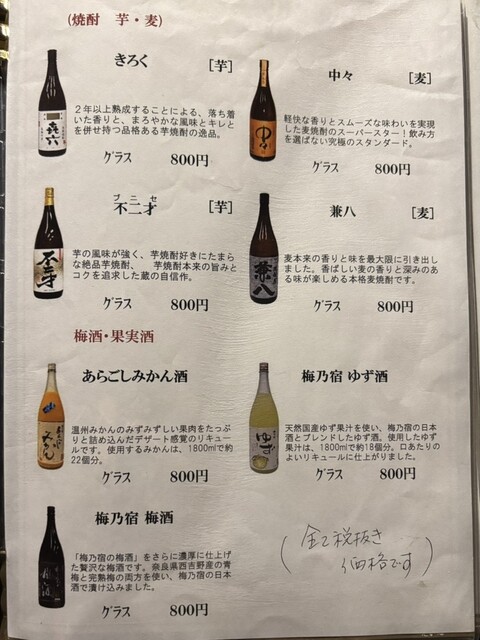 (焼酎　芋・麦)
きろく　[芋]
２年以上熟成することによる、落ち着
いた香りと、まろやかな風味とキレと
を併せ持つ品格ある芋焼酎の逸品。
グラス　800円
中々　[麦]
軽快な香りとスムーズな味わいを実現
した麦焼酎のスーパースター！飲み方
を選ばない究極のスタンダード。
グラス　800円
ブニセ
不二才　[芋]
芋の風味が強く、芋焼酎好きにたまら
な絶品芋焼酎、　芋焼酎本来の旨みと
コクを追求した蔵の自信作。
グラス　800円
兼八　[麦]
麦本来の香りと味を最大限に引き出し
ました。香ばしい麦の香りと深みのあ
る味が楽しめる本格麦焼酎です。
グラス　800円
梅酒・果実酒
あらごしみかん酒
温州みかんのみずみずしい果肉をたっぷ
りと詰め込んだデザート感覚のリキュー
ルです。使用するみかんは、1800mlで約
22個分。
グラス　800円
梅乃宿 ゆず酒
天然国産ゆず果汁を使い、梅乃宿の日本
酒とブレンドしたゆず酒。使用したゆず
果汁は、1800mlで約18個分。口あたりの
よいリキュールに仕上がりました。
グラス　800円
梅乃宿 梅酒
「梅乃宿の梅酒」をさらに濃厚に仕上げ
た贅沢な梅酒です。奈良県西吉野産の青
梅と完熟梅の両方を使い、梅乃宿の日本
酒で漬け込みました。
グラス　800円
(全て税抜き
価格です)
㐂六
中々
不二才
兼八
みかん
ゆず